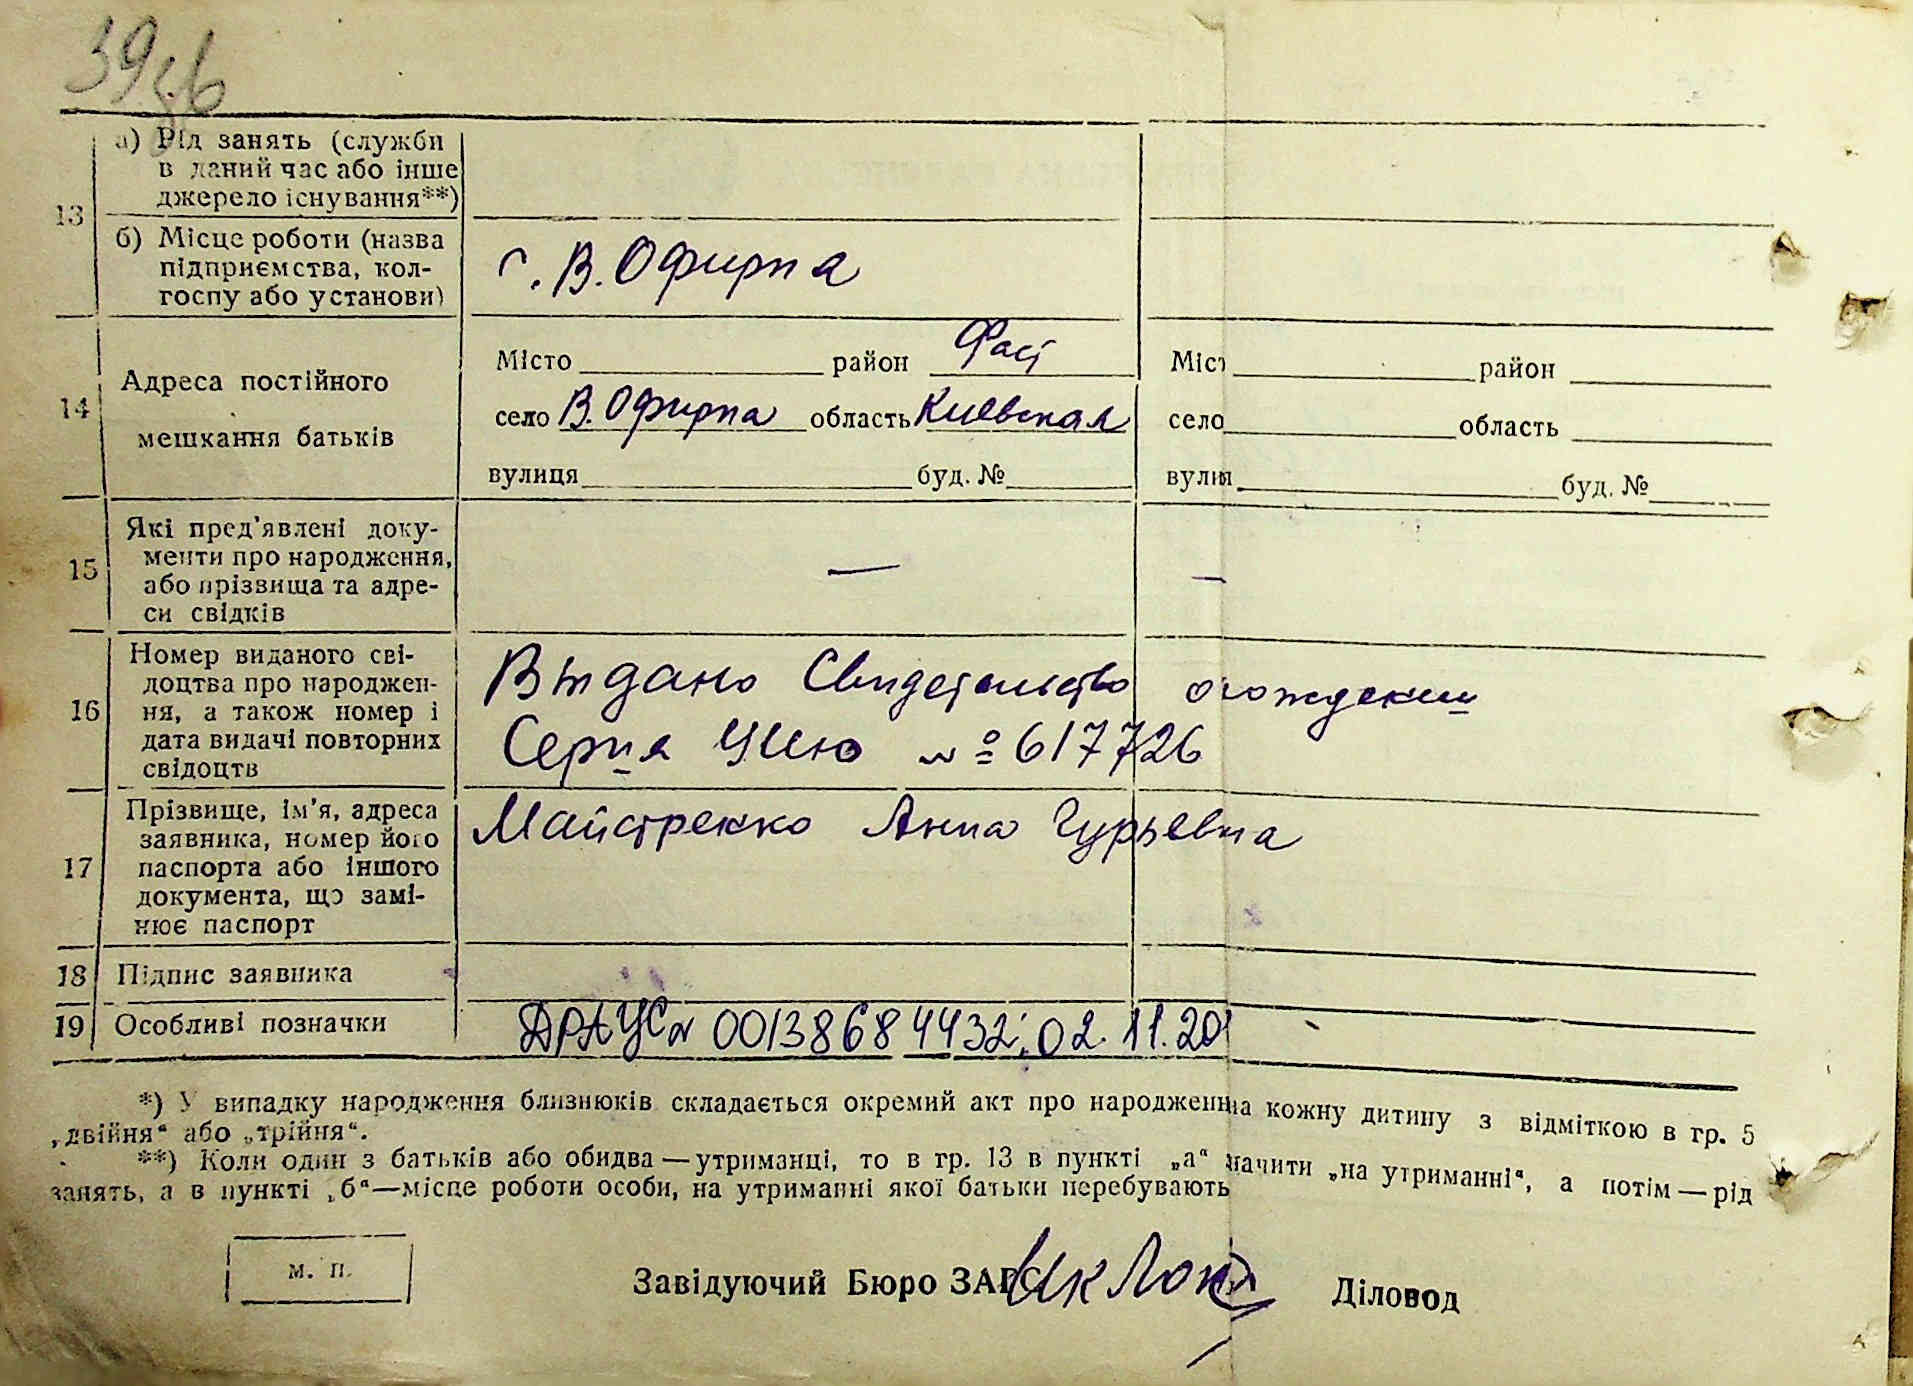 39
13
а) Рід занять (служби
в даний час або інше
джерело існування**)
б) Місце роботи (назва
підприємства, кол-
госпу або установи)
с. В. Офирна
14
Адреса постійного
мешкання батьків
Місто район Фаст
село В. Офирна область Киевская
вулиця буд. №
Міст район
село область
вулия буд. №
15
Які пред'явлені доку-
менти про народження,
або прізвища та адре-
си свідків
—
—
16
Номер виданого сві-
доцтва про народжен-
ня, а також номер і
дата видачі повторних
свідоцтв
Выдано Свидетельство о рождении
Серия № 617726
17
Прізвище, ім'я, адреса
заявника, номер його
паспорта або іншого
документа, що замі-
нює паспорт
Майстренко Анна Гурьевна
18 Підпис заявника
19 Особливі позначки
ДРАЦСг № 00138684432; 02.11.20
*) У випадку народження близнюків складається окремий акт про народженн на кожну дитину з відміткою в гр. 5
„двійня“ або „трійня“.
**) Коли один з батьків або обидва — утриманці, то в гр. 13 в пункті „а“ значити „на утриманні“, а потім — рід
занять, а в пункті „б“ — місце роботи особи, на утриманні якої батьки перебувають
М. П.
Завідуючий Бюро ЗАГС
Діловод